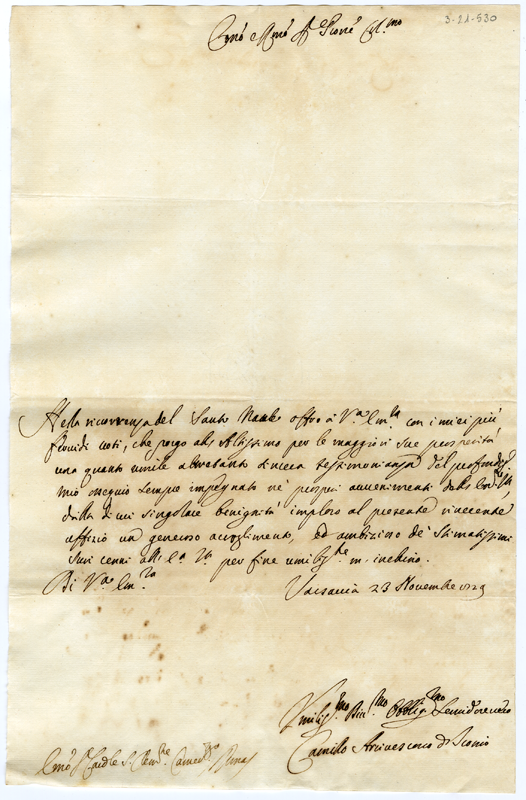 3-21-530
Emõ e Rmõ Sr. Pione Col.mo
Nella ricorrenza del Santo Natale offro à V.a Em.za con i miei più
fervidi voti, che porgo all' Altissimo per le maggiori sue prosperità
una quanto umile altretanto sincera testimonianza del profondiss.
mio ossequio sempre impegnato ne' prosperi avvenimenti della
dalla di cui singolare benignità imploro al presente riverente
offizio un generoso accoglimento, ed ambizioso de' stimatissimi
suoi cenni all' E.a V.a per fine umiliss.te m' inchino.
Di V.a Em.za
Varsavia 23 Novembre 1729
Umiliss.mo Obblig.mo Servidore vero
Camillo Arcivescovo di Iconio
Emõ Sr. Card.le S. Clem.te Roma